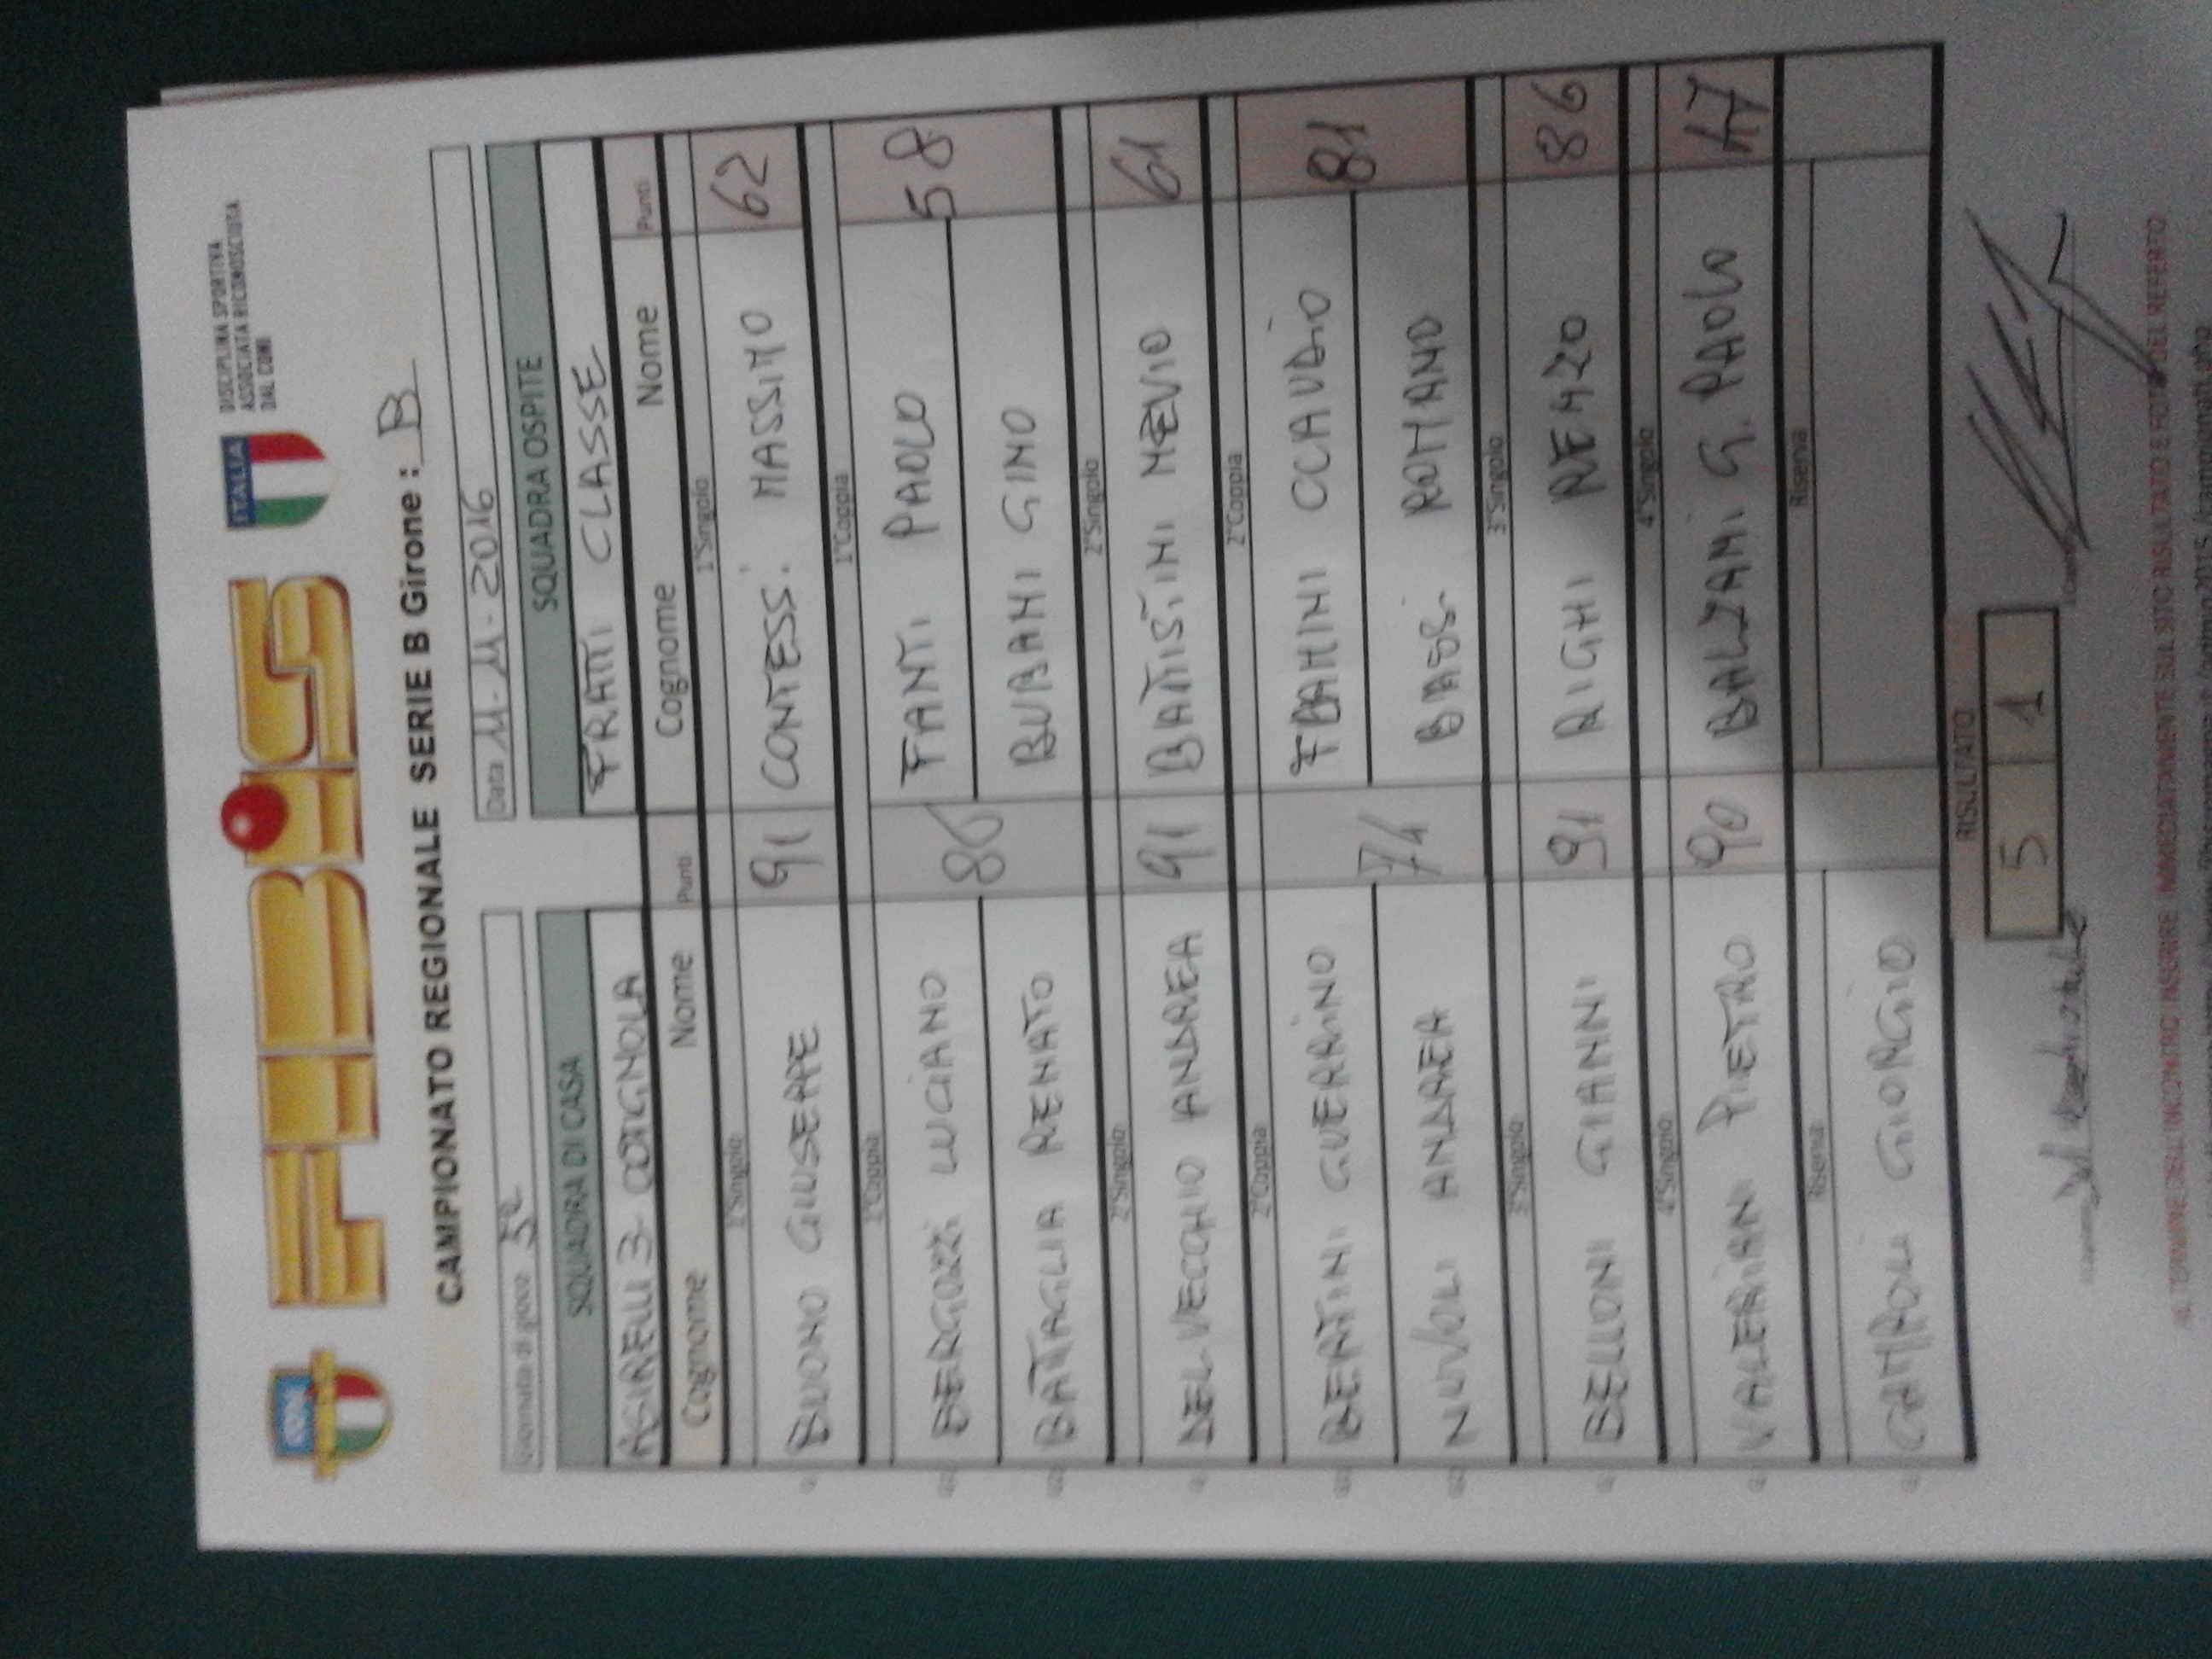 CONI
FIBiS
ITALIA
DISCIPLINA SPORTIVA
ASSOCIATA RICONOSCIUTA
DAL CONI
CAMPIONATO REGIONALE SERIE B Girone : B
Giornata di gioco 5ª Data 11-11-2016
SQUADRA DI CASA SQUADRA OSPITE
ASIRELLI 3 COTIGNOLA FRATTI CLASSE
Cognome Nome Punti Cognome Nome Punti
1°Singolo 1°Singolo
BUONO GIUSEPPE 91 CONTESSI MASSIMO 62
1°Coppia 1°Coppia
BERGOZZI LUCIANO 86 FANTI PAOLO 58
BATTAGLIA RENATO BUBANI GINO
2°Singolo 2°Singolo
DEL VECCHIO ANDREA 91 BATTISTINI MEVIO 61
2°Coppia 2°Coppia
BERTINI GUERRINO 74 81
NUVOLI ANDREA BIASI ROMANO
3°Singolo 3°Singolo
BELLONI GIANNI 91 RIGHI RENZO 86
4°Singolo 4°Singolo
VALERIANI PIETRO 90 BALZANI G. PAOLO 47
Riserva Riserva
CAMPOLI GIORGIO
RISULTATO
5 1
AL TERMINE DELL'INCONTRO INSERIRE IMMEDIATAMENTE SUL SITO RISULTATO E FOTO DEL REFERTO